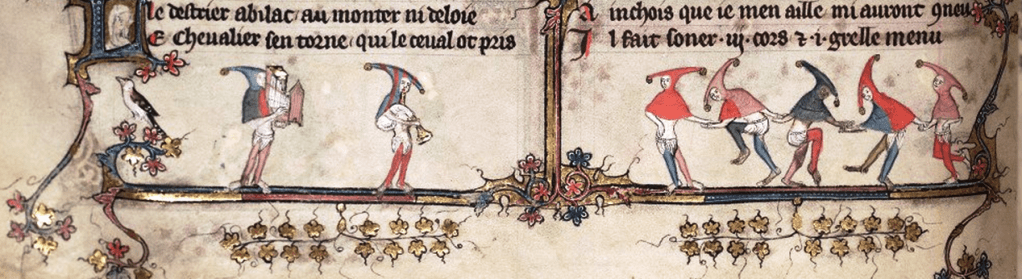 le destrier abilac au monter ni deloie
E chevalier sen torne qui le ceual ot pris
A inchois que ie men aille mi auront 9neu
I l fait soner · iij · cors ⁊ · i · grelle menu